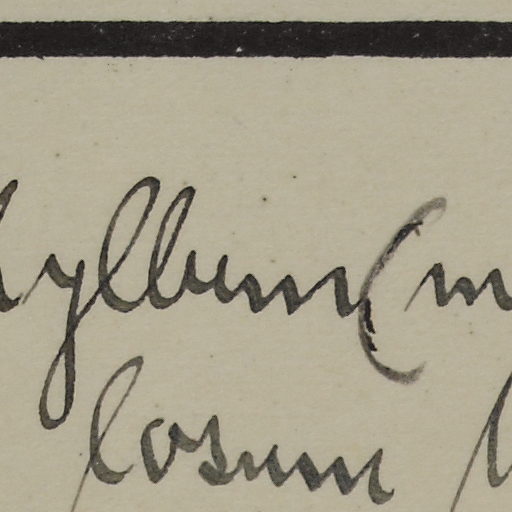 hyllum (m
losum